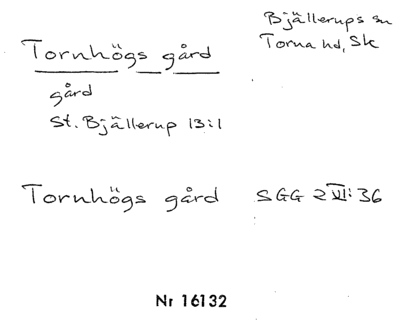 Bjällerups sn
Torna hd, Sk
Tornhögs gård
gård
St. Bjällerup 13:1
Tornhögs gård SGG 2 VI: 36
Nr 16132